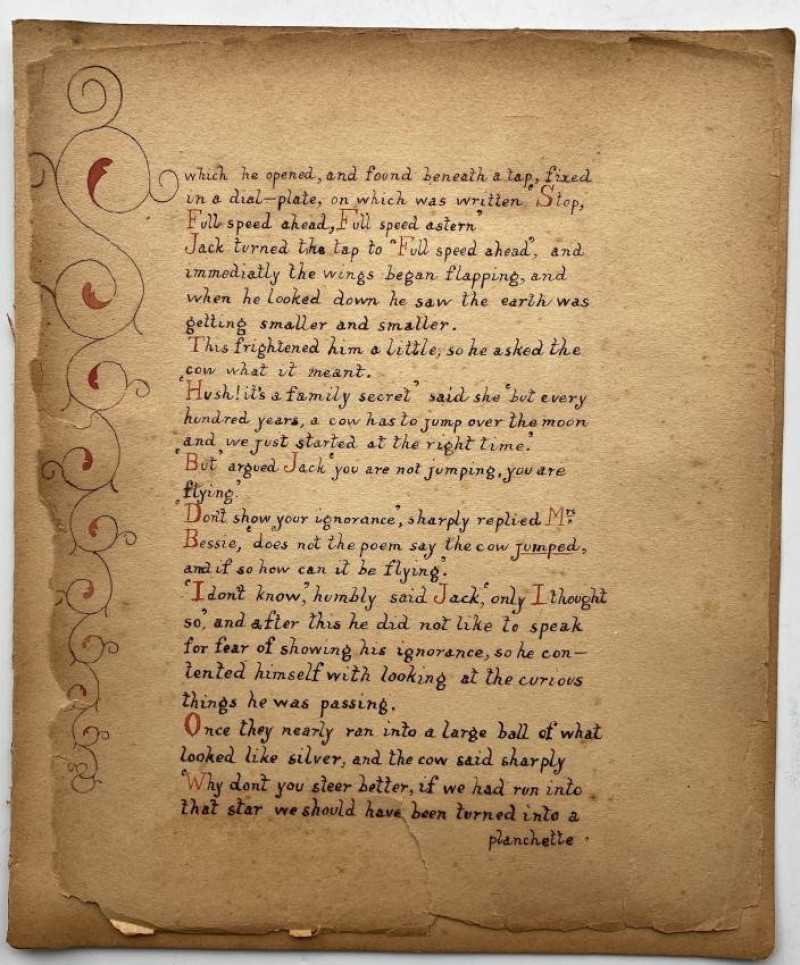 which he opened, and found beneath a tap, fixed
in a dial-plate, on which was written "Stop,
Full speed ahead, Full speed astern"
Jack turned the tap to "Full speed ahead", and
immediatly the wings began flapping, and
when he looked down he saw the earth was
getting smaller and smaller.
This frightened him a little, so he asked the
cow what it meant.
"Hush! it's a family secret" said she "but every
hundred years, a cow has to jump over the moon
and we just started at the right time."
"But" argued Jack "you are not jumping, you are
flying."
"Don't show your ignorance", sharply replied Mrs
Bessie, "does not the poem say the cow jumped,
and if so how can it be flying."
"I don't know," humbly said Jack, "only I thought
so", and after this he did not like to speak
for fear of showing his ignorance, so he con-
tented himself with looking at the curious
things he was passing.
Once they nearly ran into a large ball of what
looked like silver, and the cow said sharply
"Why dont you steer better, if we had run into
that star we should have been turned into a
planchette.